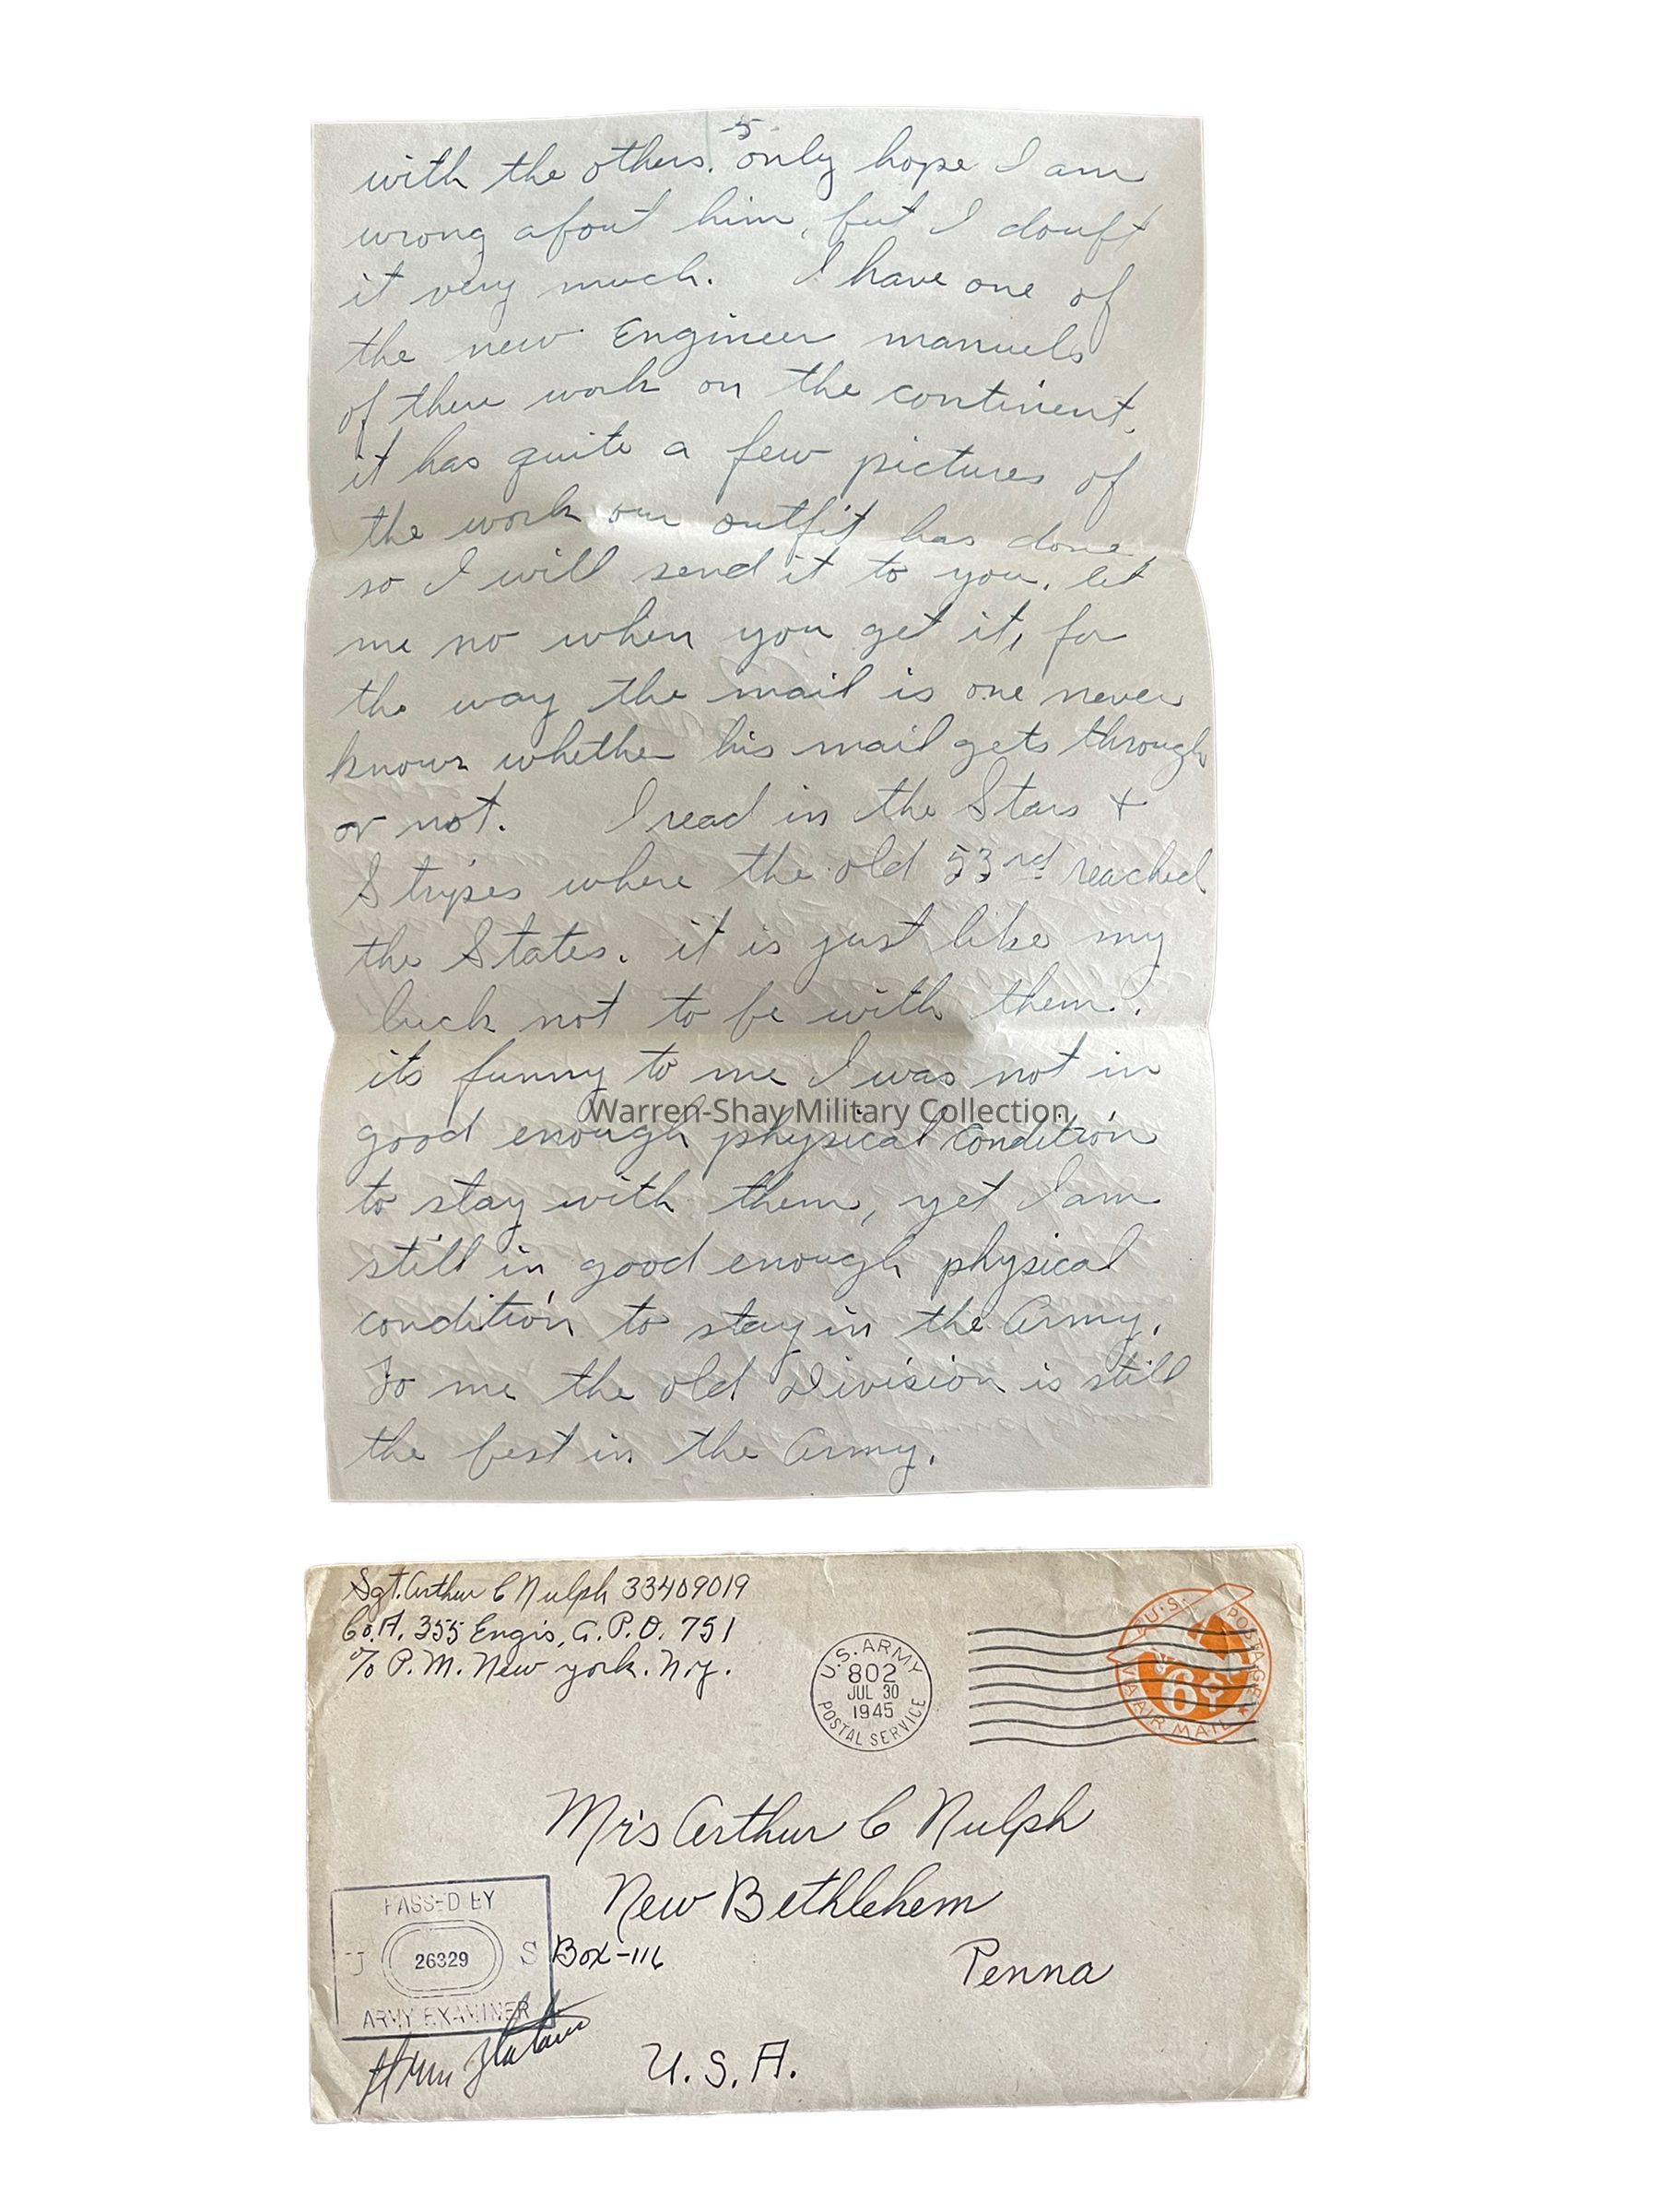 5
with the others. only hope I am
wrong about him, but I doubt
it very much. I have one of
the new Engineer manuels
of there work on the continent.
it has quite a few pictures of
the work our outfit has done,
so I will send it to you. let
me no when you get it, for
the way the mail is one never
knows whether his mail gets through
or not. I read in the Stars &
Stripes where the old 53rd reached
the States. it is just like my
luck not to be with them.
its funny to me I was not in
Warren-Shay Military Collection
good enough physical condition
to stay with them, yet I am
still in good enough physical
condition to stay in the Army.
To me the old Division is still
the best in the Army.
Sgt. Arthur C Nulph 33409019
Co. A. 355 Engis, A.P.O. 751
℅ P.M. New york. N.y.
U.S. ARMY
802
JUL 30
1945
POSTAL SERVICE
U.S. POSTAGE
6¢
VIA AIR MAIL
Mrs Arthur C Nulph
New Bethlehem
Box-116
Penna
U.S.A.
PASSED BY
U 26329 S
ARMY EXAMINER